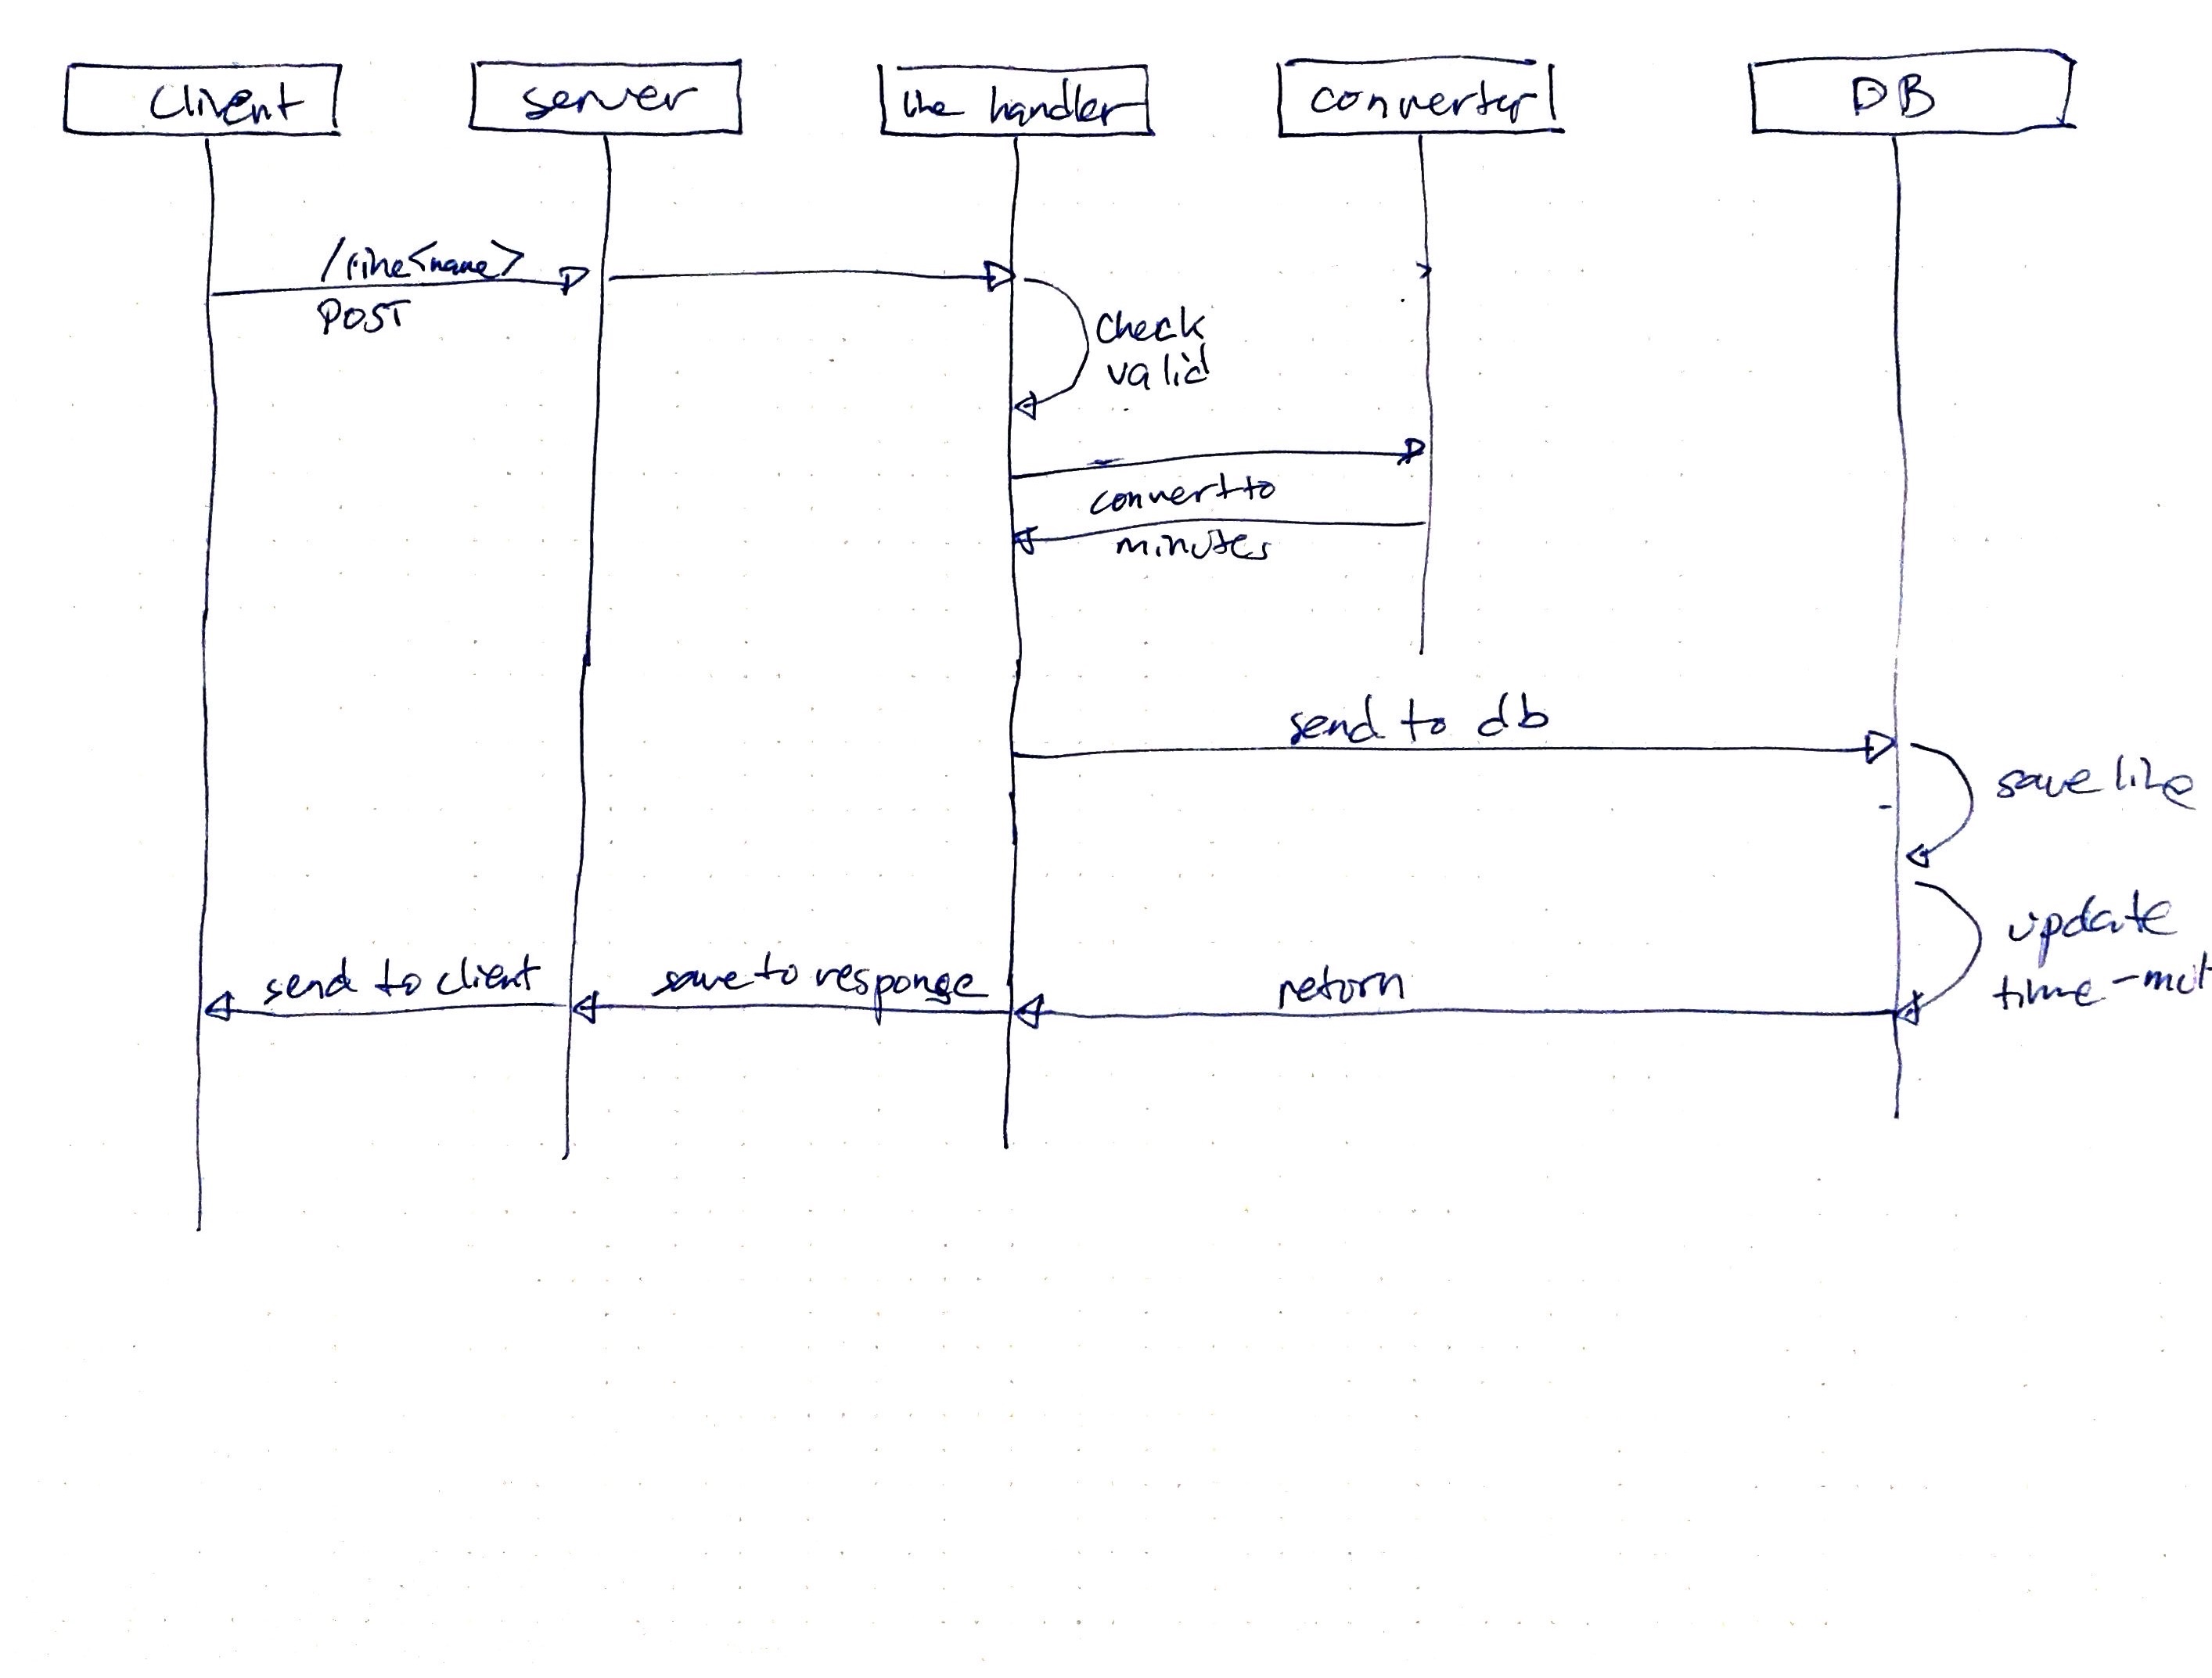 client
server
like handler
converter
DB
/like<name>
POST
check
valid
convert to
minutes
send to db
save like
update
send to client
save to response
return